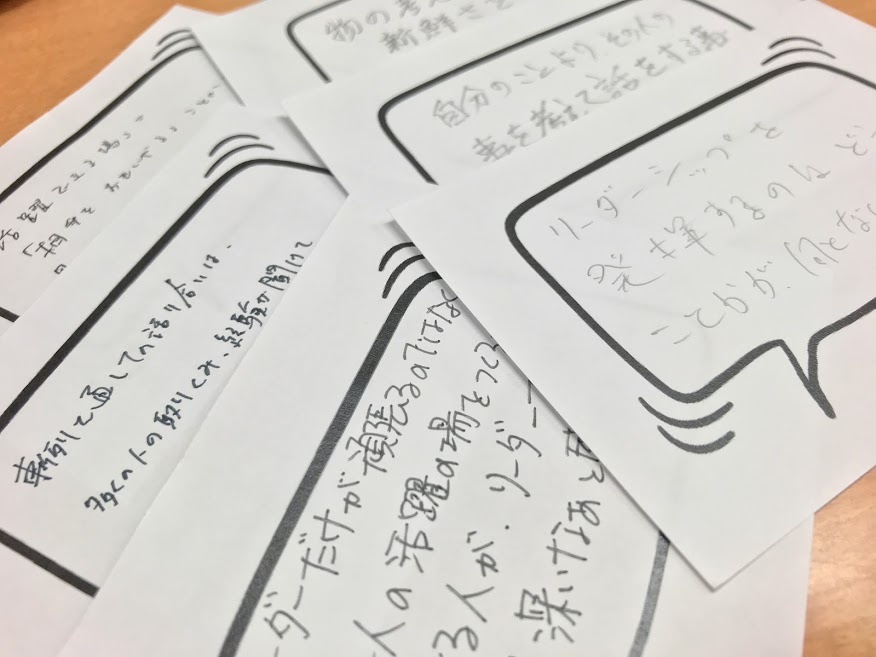 物の考え
新鮮さを
自分のことより、その人の
事を考えて話をする事
リーダーシップを
発揮するのは ど
ことかが、
活躍できる場
「相手を
事例を通しての話し合いは、
多くの人の取りくみ、経験が聞けて
ーダーだけが頑張るのではな
人の活躍の場をつくり
る人が、リーダー
深いなあと